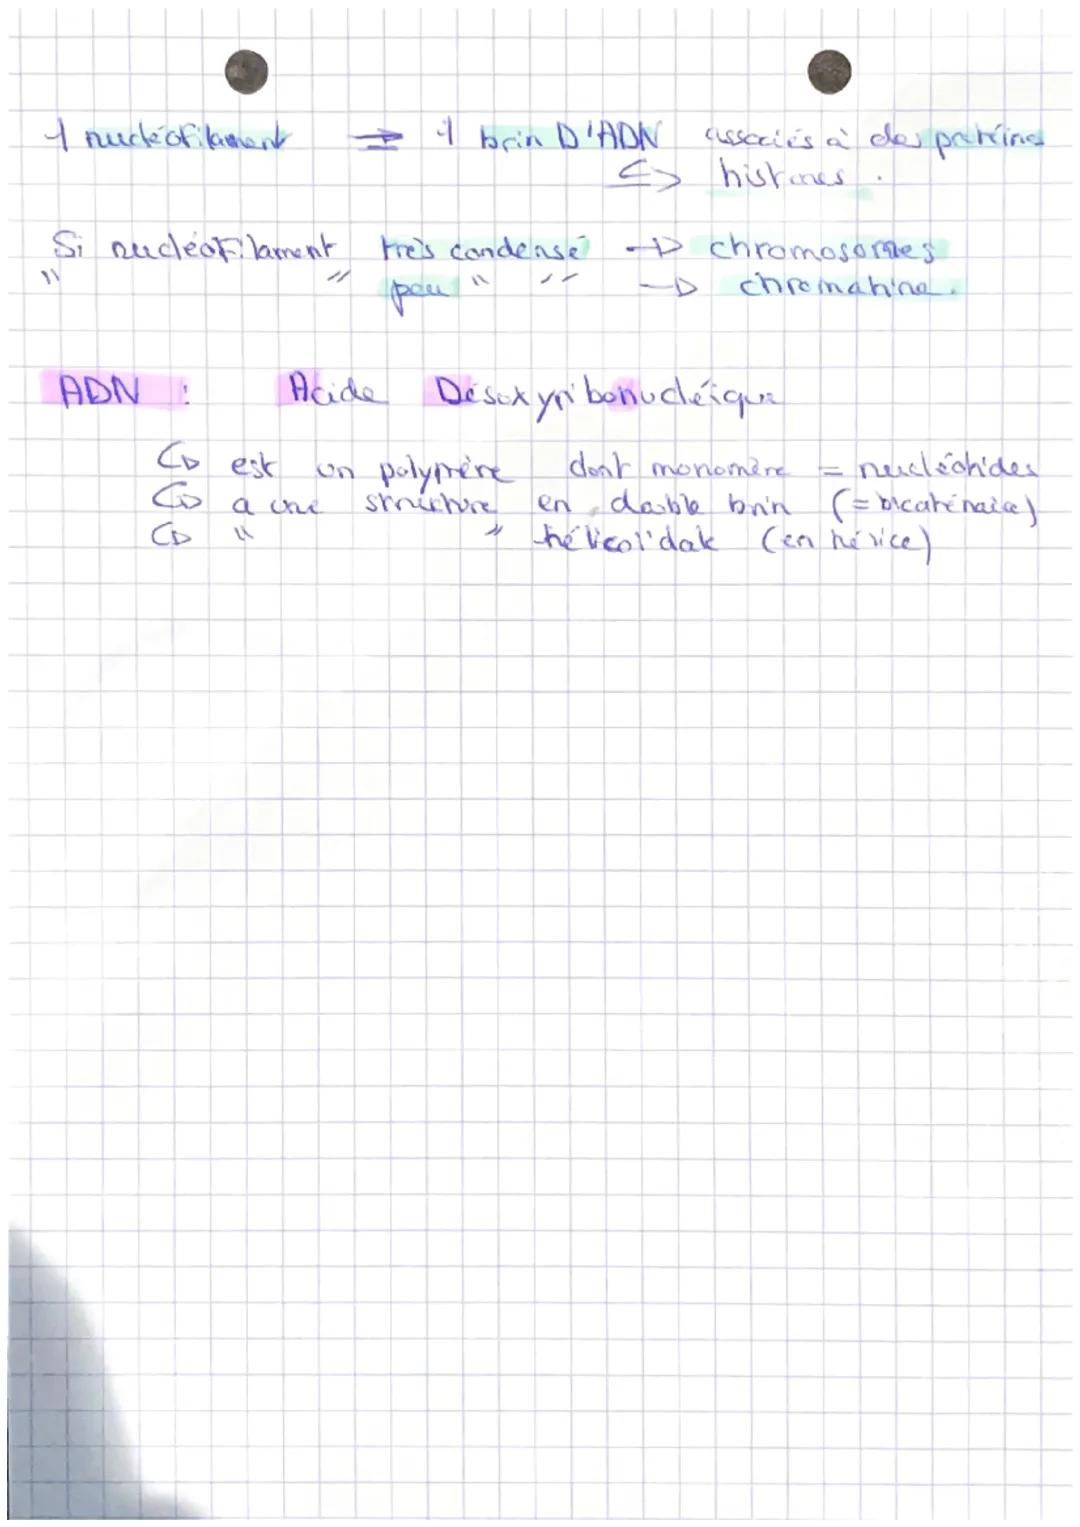 1 nucléofilament => 1 brin D'ADN associés à des protéines
↳ histones.
Si nucléofilament très condensé → chromosomes
" " peu " " → chromatine.
ADN : Acide Désoxyribonucléique
↳ est un polymère dont monomère = nucléotides
↳ a une structure en double brin (= bicaténaire)
↳ " " hélicoïdale (en hélice)